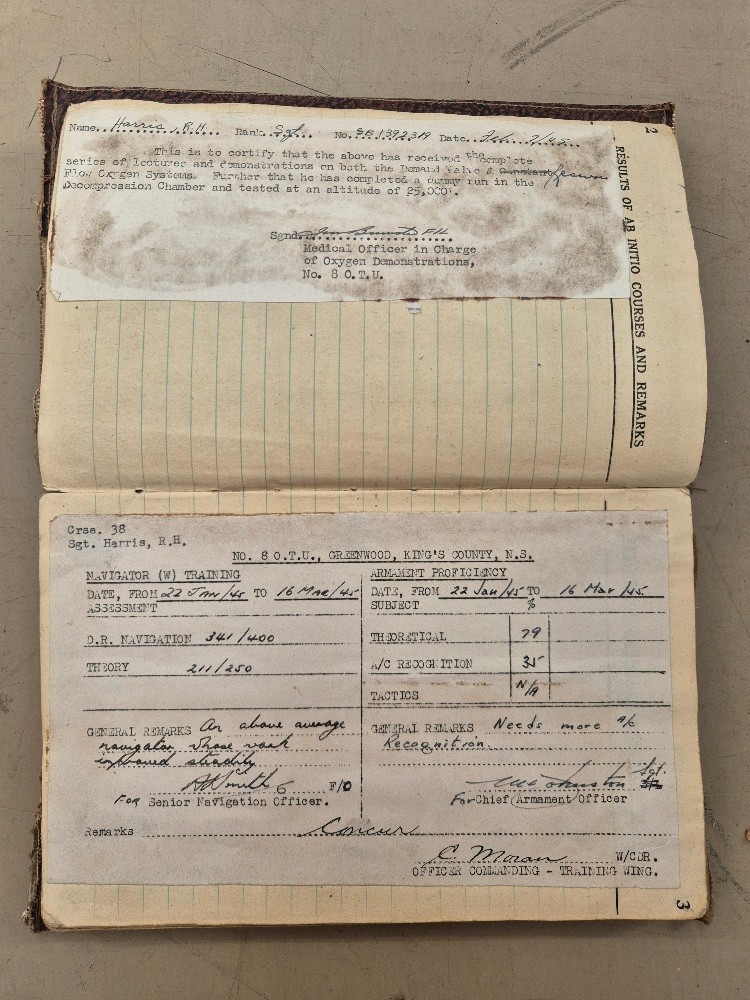 2
RESULTS OF AB INITIO COURSES AND REMARKS
Name... Harris, R.H. Rank. Sgt. No. 1392319 Date. Feb. 2/45
This is to certify that the above has received the complete
series of lectures and demonstrations on both the Demand Valve &
Flow Oxygen Systems. Further that he has completed a dummy run in the
Decompression Chamber and tested at an altitude of 25,000'.
Sgnd. F/L
Medical Officer in Charge
of Oxygen Demonstrations,
No. 8 O.T.U.
Crse. 38
Sgt. Harris, R.H.
NO. 8 O.T.U., GREENWOOD, KING'S COUNTY, N.S.
NAVIGATOR (W) TRAINING
DATE, FROM 22 JAN/45 TO 16 MAR/45
ASSESSMENT
D.R. NAVIGATION 341/400
THEORY 211/250
GENERAL REMARKS An above average
navigator, whose work
improved steadily
F/O
FOR Senior Navigation Officer.
ARMAMENT PROFICIENCY
DATE, FROM 22 Jan/45 TO 16 Mar/45
SUBJECT %
THEORETICAL 79
A/C RECOGNITION 35
TACTICS N/A
GENERAL REMARKS Needs more a/c
Recognition
Sgt.
For Chief Armament Officer
Remarks Concur
C. Moran W/CDR.
OFFICER COMMANDING - TRAINING WING.
3